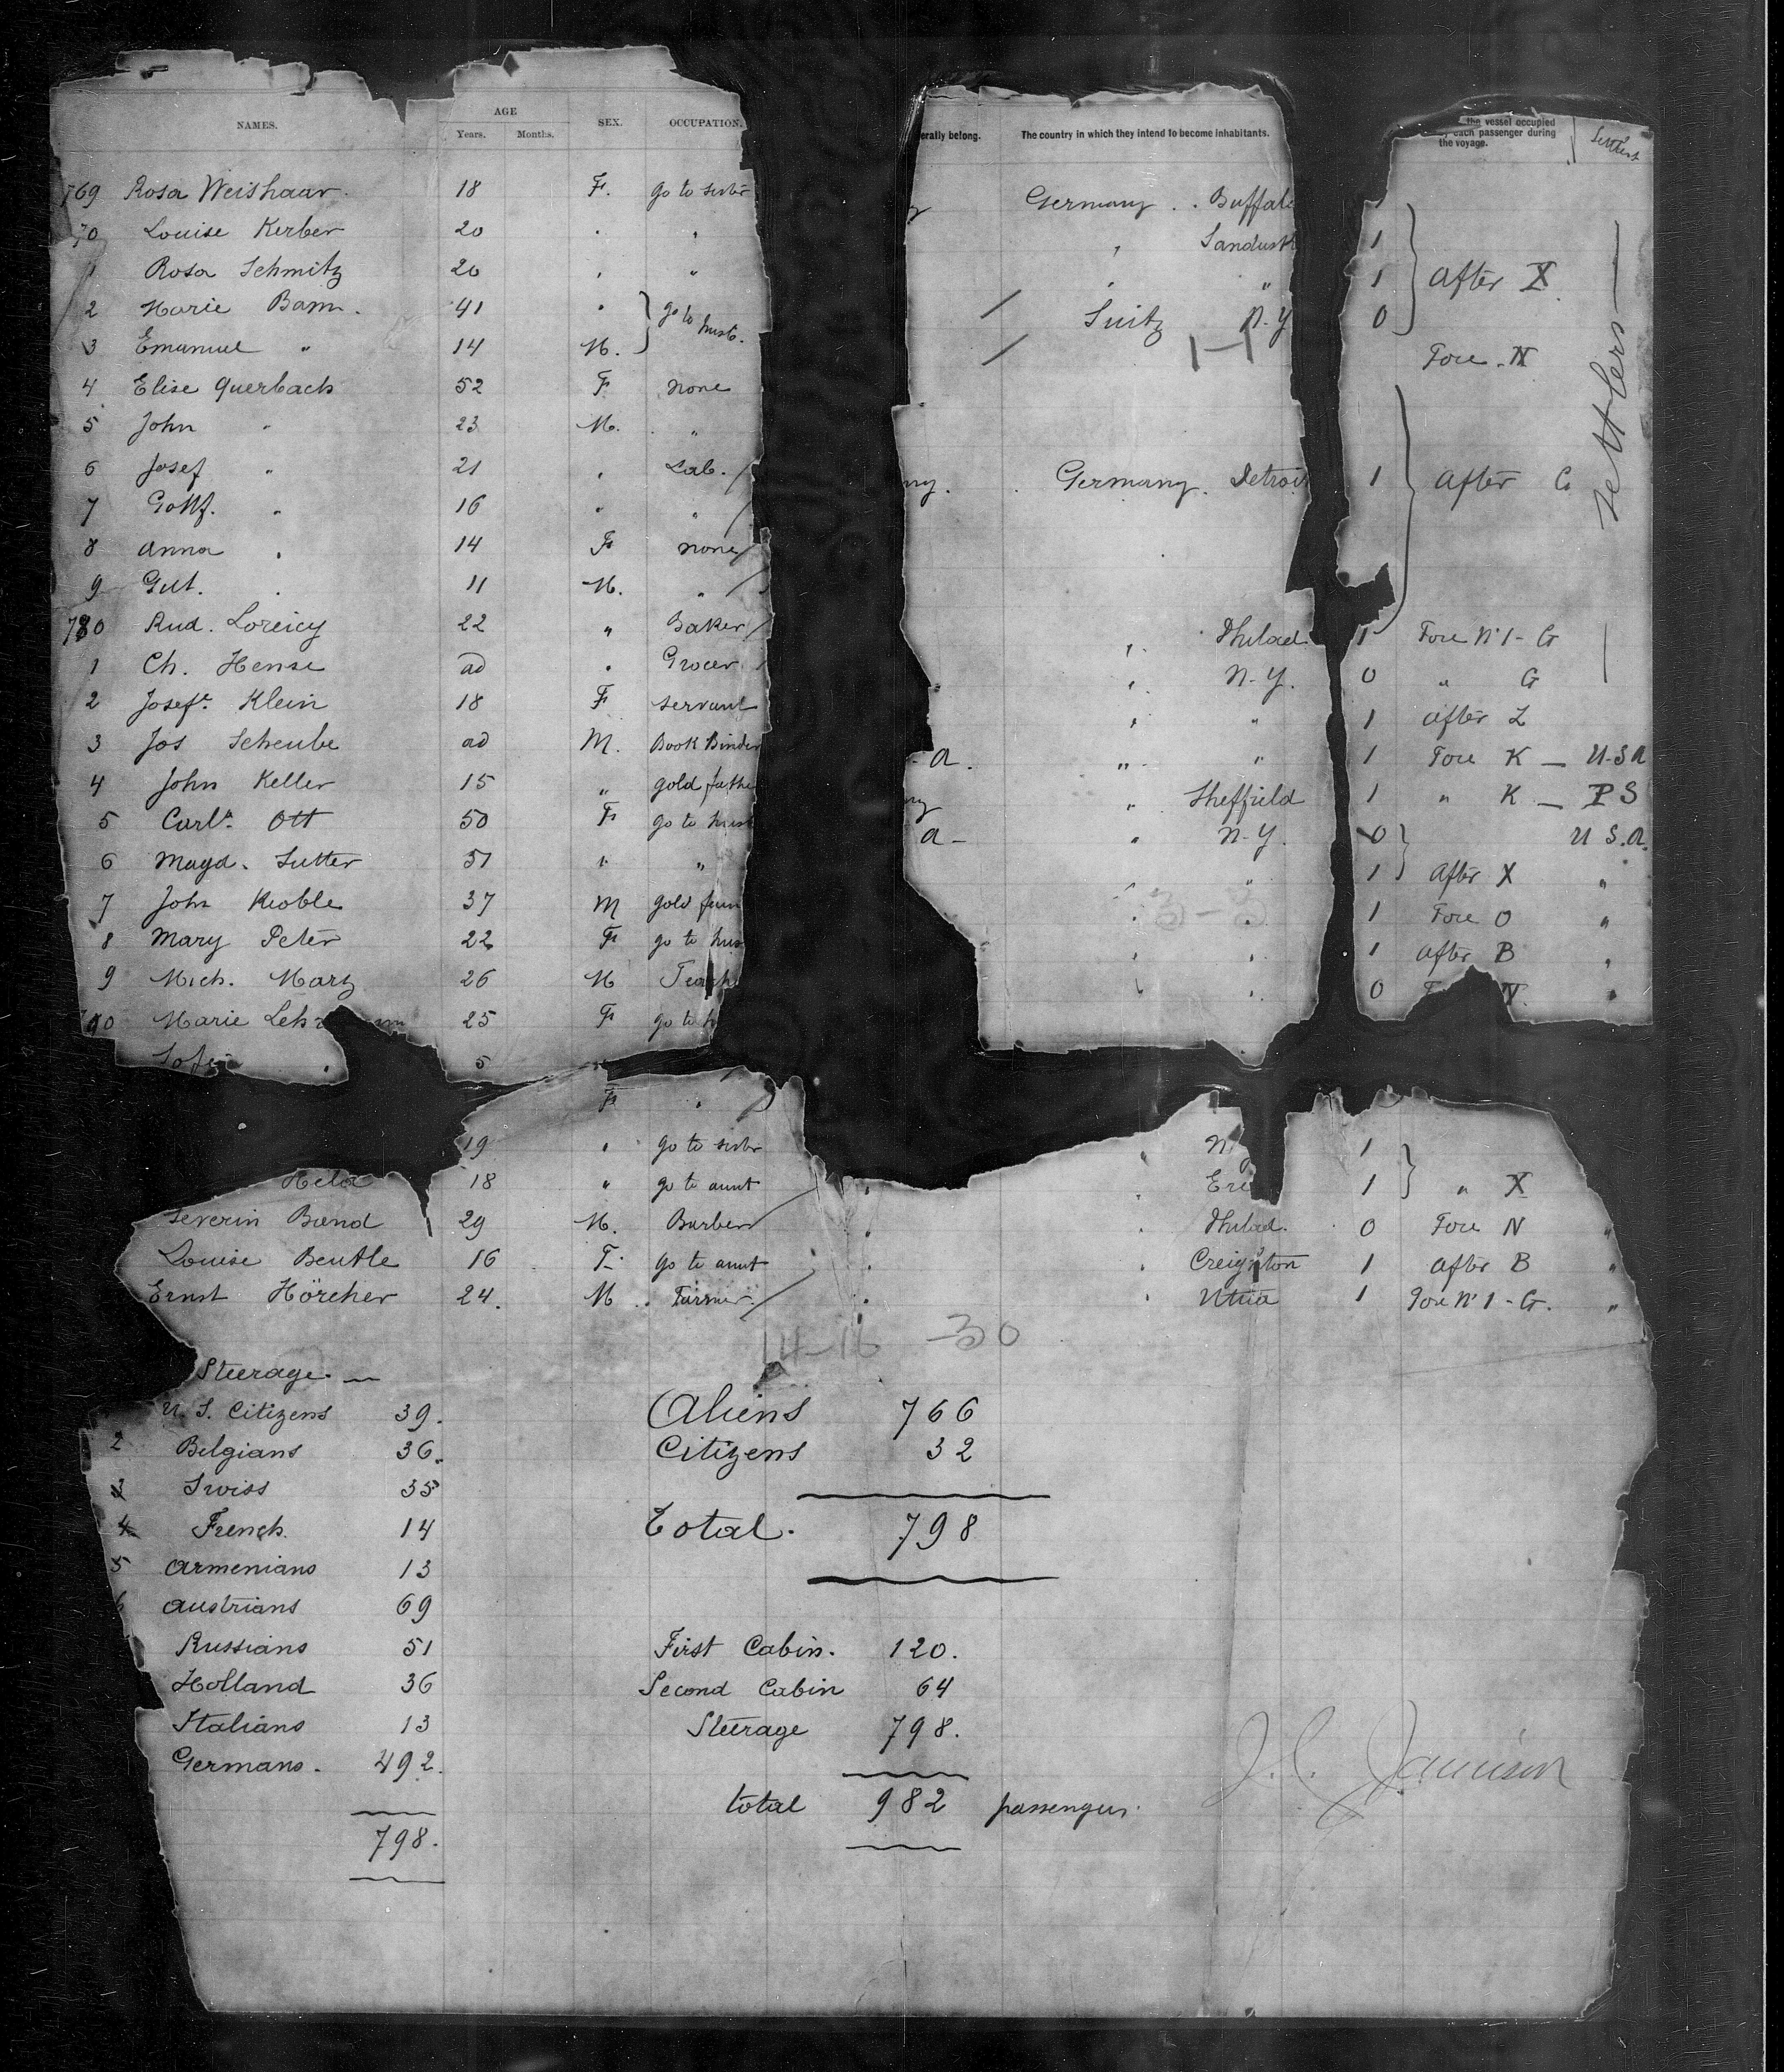 NAMES. AGE Years. Months. SEX. OCCUPATION. erally belong. The country in which they intend to become inhabitants. the vessel occupied each passenger during the voyage.
769 Rosa Weishaar. 18 F. go to sister Germany . . Buffalo
70 Louise Kerber 20 " " " Sandusk 1
1 Rosa Schmitz 20 " " " " 1 After X
2 Marie Bam . 41 " go to husb. / Suitz N.Y 0
3 Emanuel " 14 M. / 1-1 Fore . N
4 Elise Querbach 52 F none
5 John " 23 M. "
6 Josef " 21 " Lab. / ny. Germany. Detroi 1 After G
7 Gottf. " 16 " " /
8 Anna " 14 F none /
9 Gut. " 11 M. " /
780 Rud. Loreicy 22 " Baker / " Philad 1 Fore N° 1 - G
1 Ch. Hense ad " Grocer / " N-Y. 0 " G
2 Josef.e Klein 18 F servant " " 1 After L
3 Jos Scheube ad M. Book Binder a. " " 1 Fore K — U.S.A
4 John Keller 15 " gold fathe ny " Sheffield 1 " K — P S
5 Carla. Ott 50 F go to husb a - " N-Y. 0 U S.A.
6 Magd. Sutter 51 " " " " 1 After X "
7 John Keoble 37 M gold fum " 3-3 " 1 Fore O "
8 Mary Peter 22 F go to hus " " 1 After B "
9 Mich. Marz 26 M Teach " " 0 F N "
790 Marie Leh m 25 F go to h
Sofie " 5 "
F "
19 " go to sister " N 1
Hela 18 " go to aunt " " Erie 1 " X
Severin Band 29 M. Barber / " " Philad. 0 Fore N "
Louise Beutle 16 F. go to aunt " " Creighton 1 After B "
Ernst Hörcher 24. M . Farmer. / " " Utica 1 Fore N° 1 - G. "
settlers —
14-16 -30
Steerage. —
U. S. Citizens 39.
2 Belgians 36.
3 Swiss 35
4 French. 14
5 Armenians 13
6 Austrians 69
Russians 51
Holland 36
Italians 13
Germans. 492.
798.
Aliens 766
Citizens 32
Total. 798
First Cabin. 120.
Second Cabin 64
Steerage 798.
total 982 passengers.
J. C. Jamison